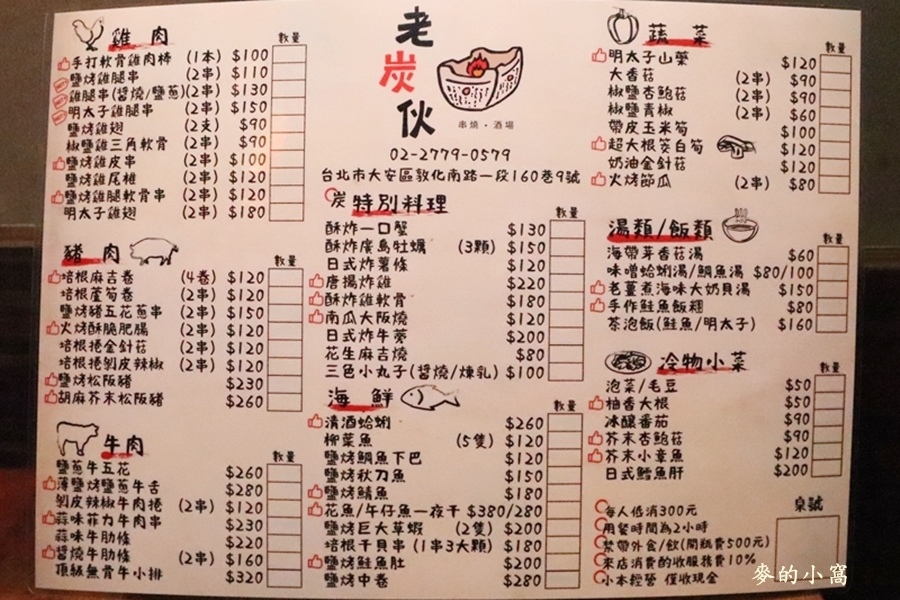 雞肉 數量
手打軟骨雞肉棒 (1本) $100
鹽烤雞腿串 (2串) $110
雞腿串(醬燒/鹽蔥)(2串) $130
明太子雞腿串 (2串) $150
鹽烤雞翅 (2支) $90
椒鹽雞三角軟骨 (2串) $90
鹽烤雞皮串 (2串) $100
鹽烤雞尾椎 (2串) $120
鹽烤雞腿軟骨串 (2串) $120
明太子雞翅 (2串) $180
豬肉 數量
培根麻吉卷 (4卷) $120
培根蘆筍卷 (2串) $120
鹽烤豬五花蔥串 (2串) $150
火烤酥脆肥腸 (2串) $120
培根捲金針菇 (2串) $120
培根捲剝皮辣椒 (2串) $120
鹽烤松阪豬 $230
胡麻芥末松阪豬 $260
牛肉 數量
鹽蔥牛五花 $260
薄鹽烤鹽蔥牛舌 $280
剝皮辣椒牛肉捲 (2串) $120
蒜味菲力牛肉串 $230
蒜味牛肋條 $220
醬燒牛肋條 (2串) $160
頂級無骨牛小排 $320
老炭伙
串燒・酒場
02-2779-0579
台北市大安區敦化南路一段160巷9號
炭特別料理 數量
酥炸一口蟹 $130
酥炸廣島牡蠣 (3顆) $150
日式炸薯條 $120
唐揚炸雞 $220
酥炸雞軟骨 $180
南瓜大阪燒 $120
日式炸牛蒡 $200
花生麻吉燒 $80
三色小丸子(醬燒/煉乳) $100
海鮮 數量
清酒蛤蜊 $260
柳葉魚 (5隻) $120
鹽烤鯛魚下巴 $120
鹽烤秋刀魚 $150
鹽烤鯖魚 $180
花魚/午仔魚一夜干 $380/280
鹽烤巨大草蝦 (2隻) $200
培根干貝串 (1串3大顆) $180
鹽烤鮭魚肚 $200
鹽烤中卷 $280
蔬菜 數量
明太子山藥 $120
大香菇 (2串) $90
椒鹽杏鮑菇 (2串) $90
椒鹽青椒 (2串) $60
帶皮玉米筍 $100
超大根茭白筍 $120
奶油金針菇 $120
火烤節瓜 (2串) $80
湯類/飯類 數量
海帶芽香菇湯 $60
味噌蛤蜊湯/鯛魚湯 $80/100
老薑煮海味大奶貝湯 $150
手作鮭魚飯糰 $80
茶泡飯(鮭魚/明太子) $160
冷物小菜 數量
泡菜/毛豆 $50
柚香大根 $50
冰釀番茄 $90
芥末杏鮑菇 $90
芥末小章魚 $120
日式鱈魚肝 $200
每人低消300元
用餐時間為2小時
禁帶外食/飲(開瓶費500元)
來店消費酌收服務費10%
小本經營 僅收現金
桌號
麥的小窩